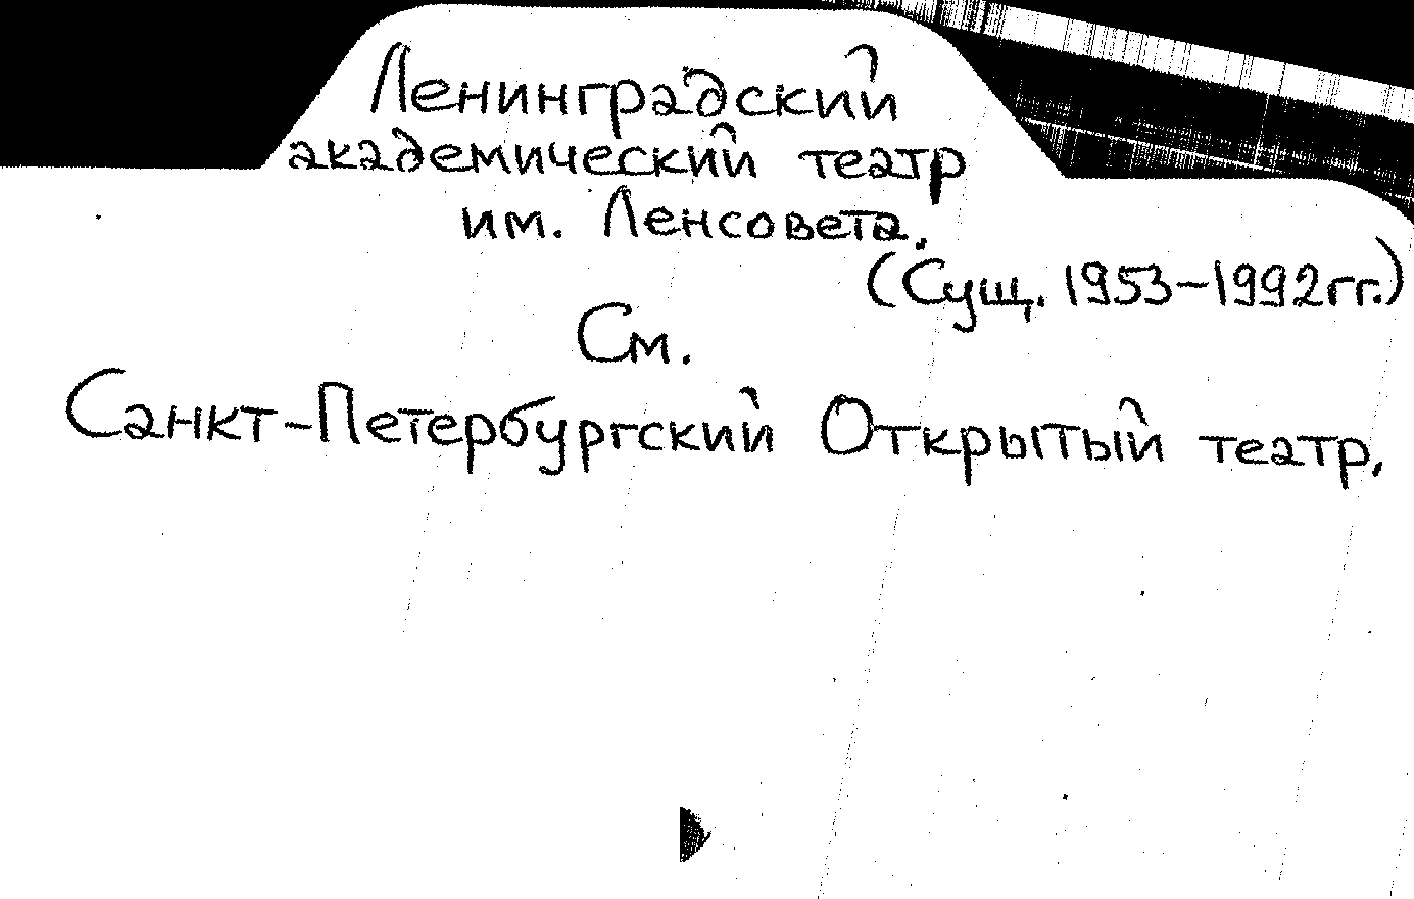 Ленинградский
академический театр
им. Ленсовета.
(Сущ. 1953-1992гг.)
См.
Санкт-Петербургский Открытый театр.